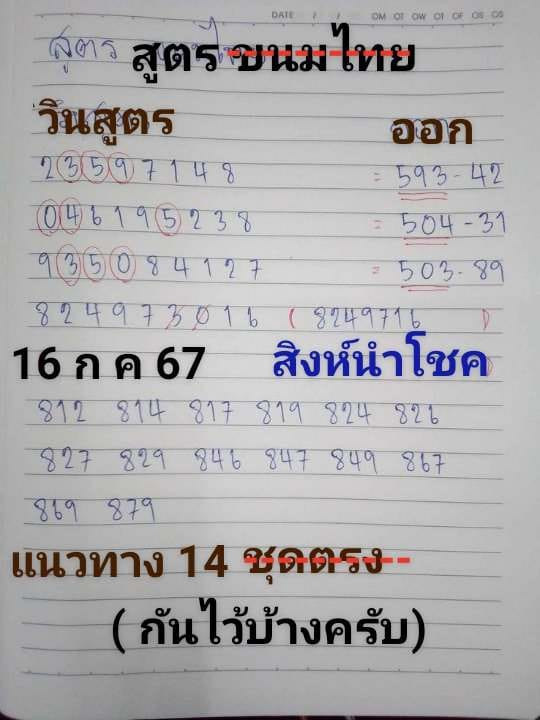 DATE / / OM OT OW OT OF OS OS
สูตร
สูตร ขนมไทย
วินสูตร ออก
2 3 5 9 7 1 4 8 = 593 - 42
0 4 6 1 9 5 2 3 8 = 504 - 31
9 3 5 0 8 4 1 2 7 = 503 - 89
8 2 4 9 7 3 0 1 6 ( 8249716 )
16 ก ค 67 สิงห์นำโชค
812 814 817 819 824 826
827 829 846 847 849 867
869 879
แนวทาง 14 ชุดตรง
( กันไว้บ้างครับ)